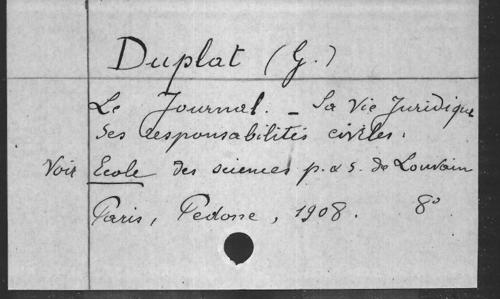 Duplat (G.)
Le Journal. - Sa Vie Juridique
Ses responsabilités civiles.
Voir Ecole des sciences p. & s. de Louvain
Paris, Pedone, 1908. 8°